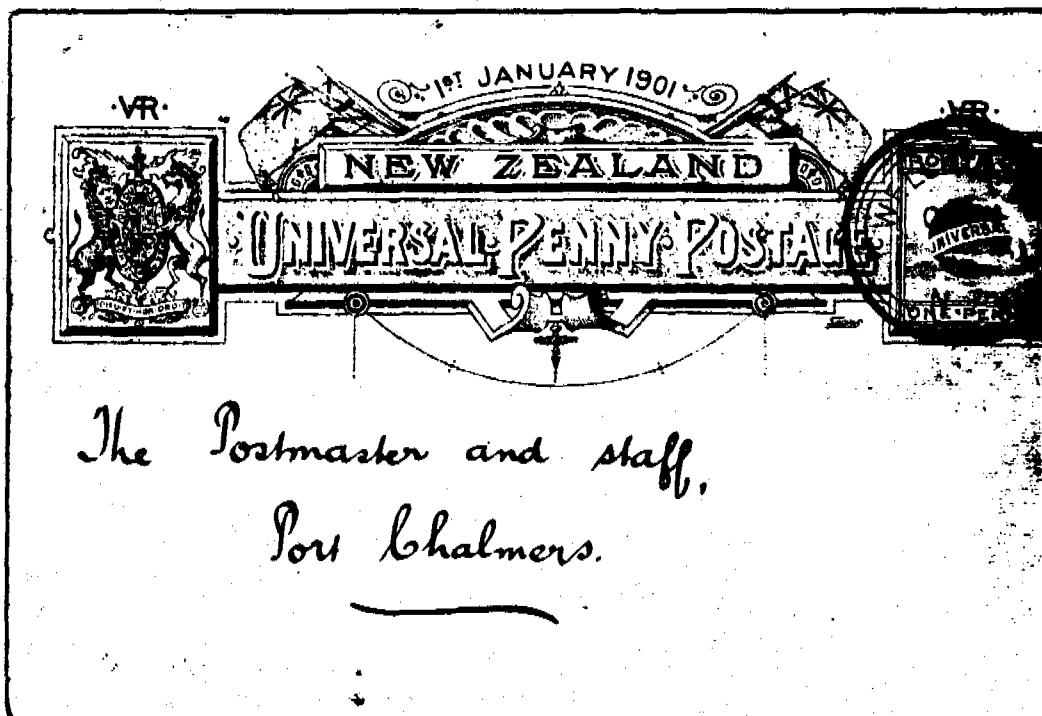 1ST JANUARY 1901
·VR· ·VR·
NEW ZEALAND
UNIVERSAL·PENNY·POSTAGE
UNIVERSAL
The Postmaster and staff,
Port Chalmers.